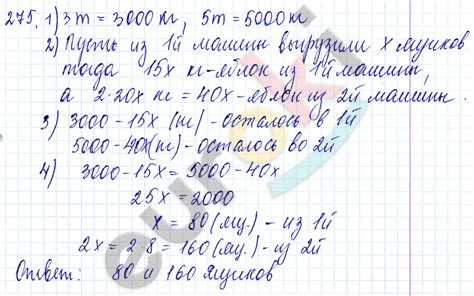 275. 1) 3т = 3000 кг, 5т = 5000 кг
2) Пусть из 1й машин выгрузили x ящиков
тогда 15x кг-яблок из 1й машины,
а 2·20x кг = 40x-яблок из 2й машины.
3) 3000-15x (кг) - осталось в 1й
5000-40x(кг) - осталось во 2й
4) 3000-15x = 5000-40x
25x = 2000
x = 80 (ящ.) - из 1й
2x = 2·8 = 160 (ящ.) - из 2й
Ответ: 80 и 160 ящиков
euroki